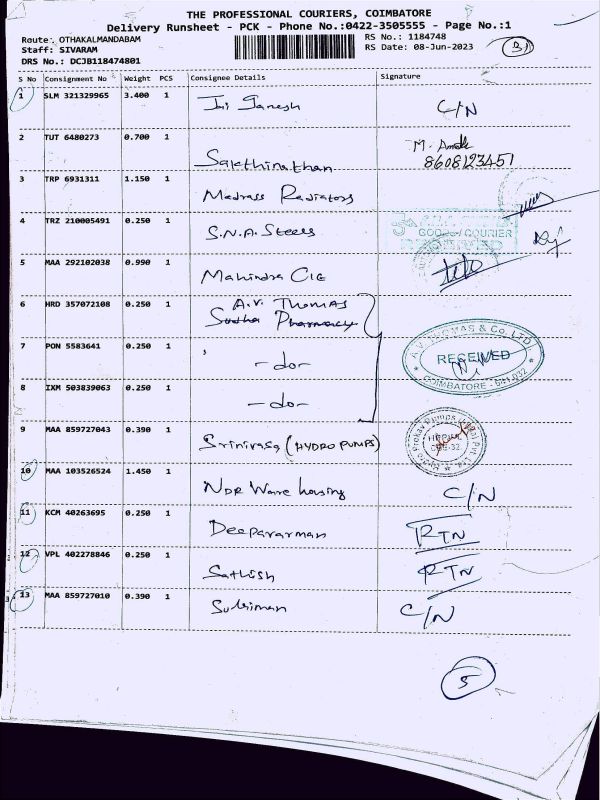 THE PROFESSIONAL COURIERS, COIMBATORE
Delivery Runsheet - PCK - Phone No.:0422-3505555 - Page No.:1
Route: OTHAKALMANDABAM
RS No.: 1184748
Staff: SIVARAM
RS Date: 08-Jun-2023
DRS No.: DCJB118474801
S No Consignment No Weight PCS Consignee Details Signature
1 SLM 321329965 3.400 1 Jai Ganesh C/N
2 TUT 6480273 0.700 1 Sakthinathan M. 8608123451
3 TRP 6931311 1.150 1 Madrass Radiators
4 TRZ 210005491 0.250 1 S.N.A. Steels
GOODS / COURIER
RECEIVED
5 MAA 292102038 0.990 1 Mahindra CIE
6 HRD 357072108 0.250 1 A.V. THOMAS
Sudha Pharmacy
7 PON 5583641 0.250 1 -do-
A.V. THOMAS & CO. LTD.
RECEIVED
COIMBATORE - 641 032
8 IXM 503839063 0.250 1 -do-
9 MAA 859727043 0.390 1 Srinivasa (HYDRO PUMPS)
10 MAA 103526524 1.450 1 NDR Ware housing C/N
11 KCM 40263695 0.250 1 Deepararman RTN
12 VPL 402278846 0.250 1 Sathish RTN
13 MAA 859727010 0.390 1 Suleiman C/N
5